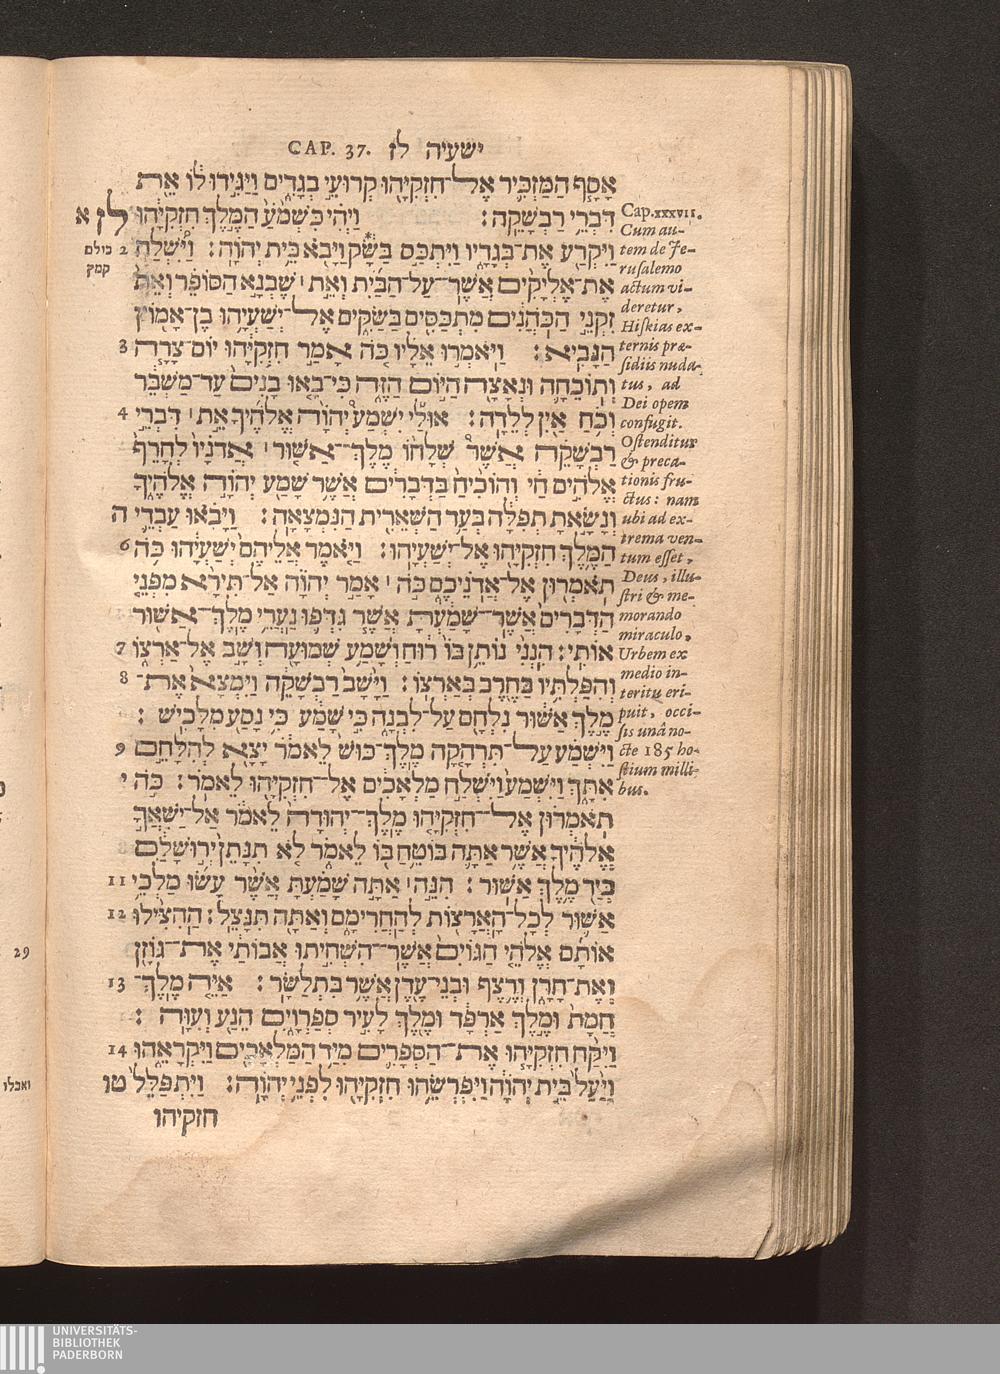 CAP. 37. ישעיה לז
אָסָף הַמַּזְכִּיר אֶל־חִזְקִיָּהוּ קְרוּעֵי בְגָדִים וַיַּגִּידוּ לוֹ אֵת
דִּבְרֵי רַבְשָׁקֵה׃ וַיְהִי כִּשְׁמֹעַ הַמֶּלֶךְ חִזְקִיָּהוּ לז א
וַיִּקְרַע אֶת־בְּגָדָיו וַיִּתְכַּס בַּשָּׂק וַיָּבֹא בֵּית יְהוָה׃ וַיִּשְׁלַח 2
אֶת־אֶלְיָקִים אֲשֶׁר־עַל־הַבַּיִת וְאֵת ׀ שֶׁבְנָא הַסּוֹפֵר וְאֵת
זִקְנֵי הַכֹּהֲנִים מִתְכַּסִּים בַּשַּׂקִּים אֶל־יְשַׁעְיָהוּ בֶן־אָמוֹץ
הַנָּבִיא׃ וַיֹּאמְרוּ אֵלָיו כֹּה אָמַר חִזְקִיָּהוּ יוֹם־צָרָה 3
וְתוֹכֵחָה וּנְאָצָה הַיּוֹם הַזֶּה כִּי־בָאוּ בָנִים עַד־מַשְׁבֵּר
וְכֹחַ אַיִן לְלֵדָה׃ אוּלַי יִשְׁמַע יְהוָה אֱלֹהֶיךָ אֵת ׀ דִּבְרֵי 4
רַבְשָׁקֵה אֲשֶׁר שְׁלָחוֹ מֶלֶךְ־אַשּׁוּר ׀ אֲדֹנָיו לְחָרֵף
אֱלֹהִים חַי וְהוֹכִיחַ בַּדְּבָרִים אֲשֶׁר שָׁמַע יְהוָה אֱלֹהֶיךָ
וְנָשָׂאתָ תְפִלָּה בְּעַד הַשְּׁאֵרִית הַנִּמְצָאָה׃ וַיָּבֹאוּ עַבְדֵי ה
הַמֶּלֶךְ חִזְקִיָּהוּ אֶל־יְשַׁעְיָהוּ׃ וַיֹּאמֶר אֲלֵיהֶם יְשַׁעְיָהוּ כֹּה 6
תֹאמְרוּן אֶל־אֲדֹנֵיכֶם כֹּה ׀ אָמַר יְהוָה אַל־תִּירָא מִפְּנֵי
הַדְּבָרִים אֲשֶׁר־שָׁמַעְתָּ אֲשֶׁר גִּדְּפוּ נַעֲרֵי מֶלֶךְ־אַשּׁוּר
אוֹתִי׃ הִנְנִי נוֹתֵן בּוֹ רוּחַ וְשָׁמַע שְׁמוּעָה וְשָׁב אֶל־אַרְצוֹ 7
וְהִפַּלְתִּיו בַּחֶרֶב בְּאַרְצוֹ׃ וַיָּשָׁב רַבְשָׁקֵה וַיִּמְצָא אֶת־ 8
מֶלֶךְ אַשּׁוּר נִלְחָם עַל־לִבְנָה כִּי שָׁמַע כִּי נָסַע מִלָּכִישׁ׃
וַיִּשְׁמַע עַל־תִּרְהָקָה מֶלֶךְ־כּוּשׁ לֵאמֹר יָצָא לְהִלָּחֵם 9
אִתָּךְ וַיִּשְׁמַע וַיִּשְׁלַח מַלְאָכִים אֶל־חִזְקִיָּהוּ לֵאמֹר׃ כֹּה י
תֹאמְרוּן אֶל־חִזְקִיָּהוּ מֶלֶךְ־יְהוּדָה לֵאמֹר אַל־יַשִּׁאֲךָ
אֱלֹהֶיךָ אֲשֶׁר אַתָּה בּוֹטֵחַ בּוֹ לֵאמֹר לֹא תִנָּתֵן יְרוּשָׁלִַם
בְּיַד מֶלֶךְ אַשּׁוּר׃ הִנֵּה ׀ אַתָּה שָׁמַעְתָּ אֲשֶׁר עָשׂוּ מַלְכֵי 11
אַשּׁוּר לְכָל־הָאֲרָצוֹת לְהַחֲרִימָם וְאַתָּה תִּנָּצֵל׃ הַהִצִּילוּ 12
אוֹתָם אֱלֹהֵי הַגּוֹיִם אֲשֶׁר־הִשְׁחִיתוּ אֲבוֹתַי אֶת־גּוֹזָן
וְאֶת־חָרָן וְרֶצֶף וּבְנֵי־עֶדֶן אֲשֶׁר בִּתְלַשָּׂר׃ אַיֵּה מֶלֶךְ־ 13
חֲמָת וּמֶלֶךְ אַרְפָּד וּמֶלֶךְ לָעִיר סְפַרְוָיִם הֵנַע וְעִוָּה׃
וַיִּקַּח חִזְקִיָּהוּ אֶת־הַסְּפָרִים מִיַּד הַמַּלְאָכִים וַיִּקְרָאֵהוּ 14
וַיַּעַל בֵּית יְהוָה וַיִּפְרְשֵׂהוּ חִזְקִיָּהוּ לִפְנֵי יְהוָה׃ וַיִּתְפַּלֵּל טו
חזקיהו
כולם
קמץ
Cap.xxxvii.
Cum au-
tem de Je-
rusalemo
actum vi-
deretur,
Hiskias ex-
ternis præ-
sidiis nuda-
tus, ad
Dei opem
confugit.
Ostenditur
& preca-
tionis fru-
ctus: nam
ubi ad ex-
trema ven-
tum esset,
Deus, illu-
stri & me-
morando
miraculo,
Urbem ex
medio in-
teritu eri-
puit, occi-
sis unâ no-
cte 185 ho-
stium milli-
bus.
29
ואכלו
UNIVERSITÄTS-
BIBLIOTHEK
PADERBORN